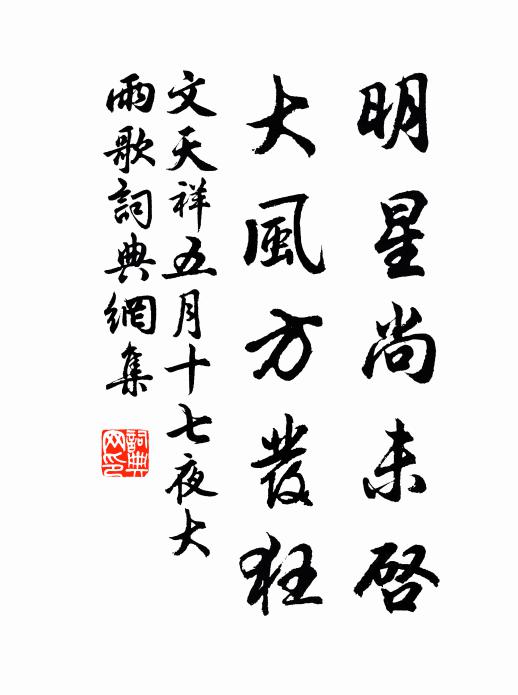 明星尚未啓
大風方發狂
文天祥五月十七夜大
雨歌詞典網集
詞典
网印